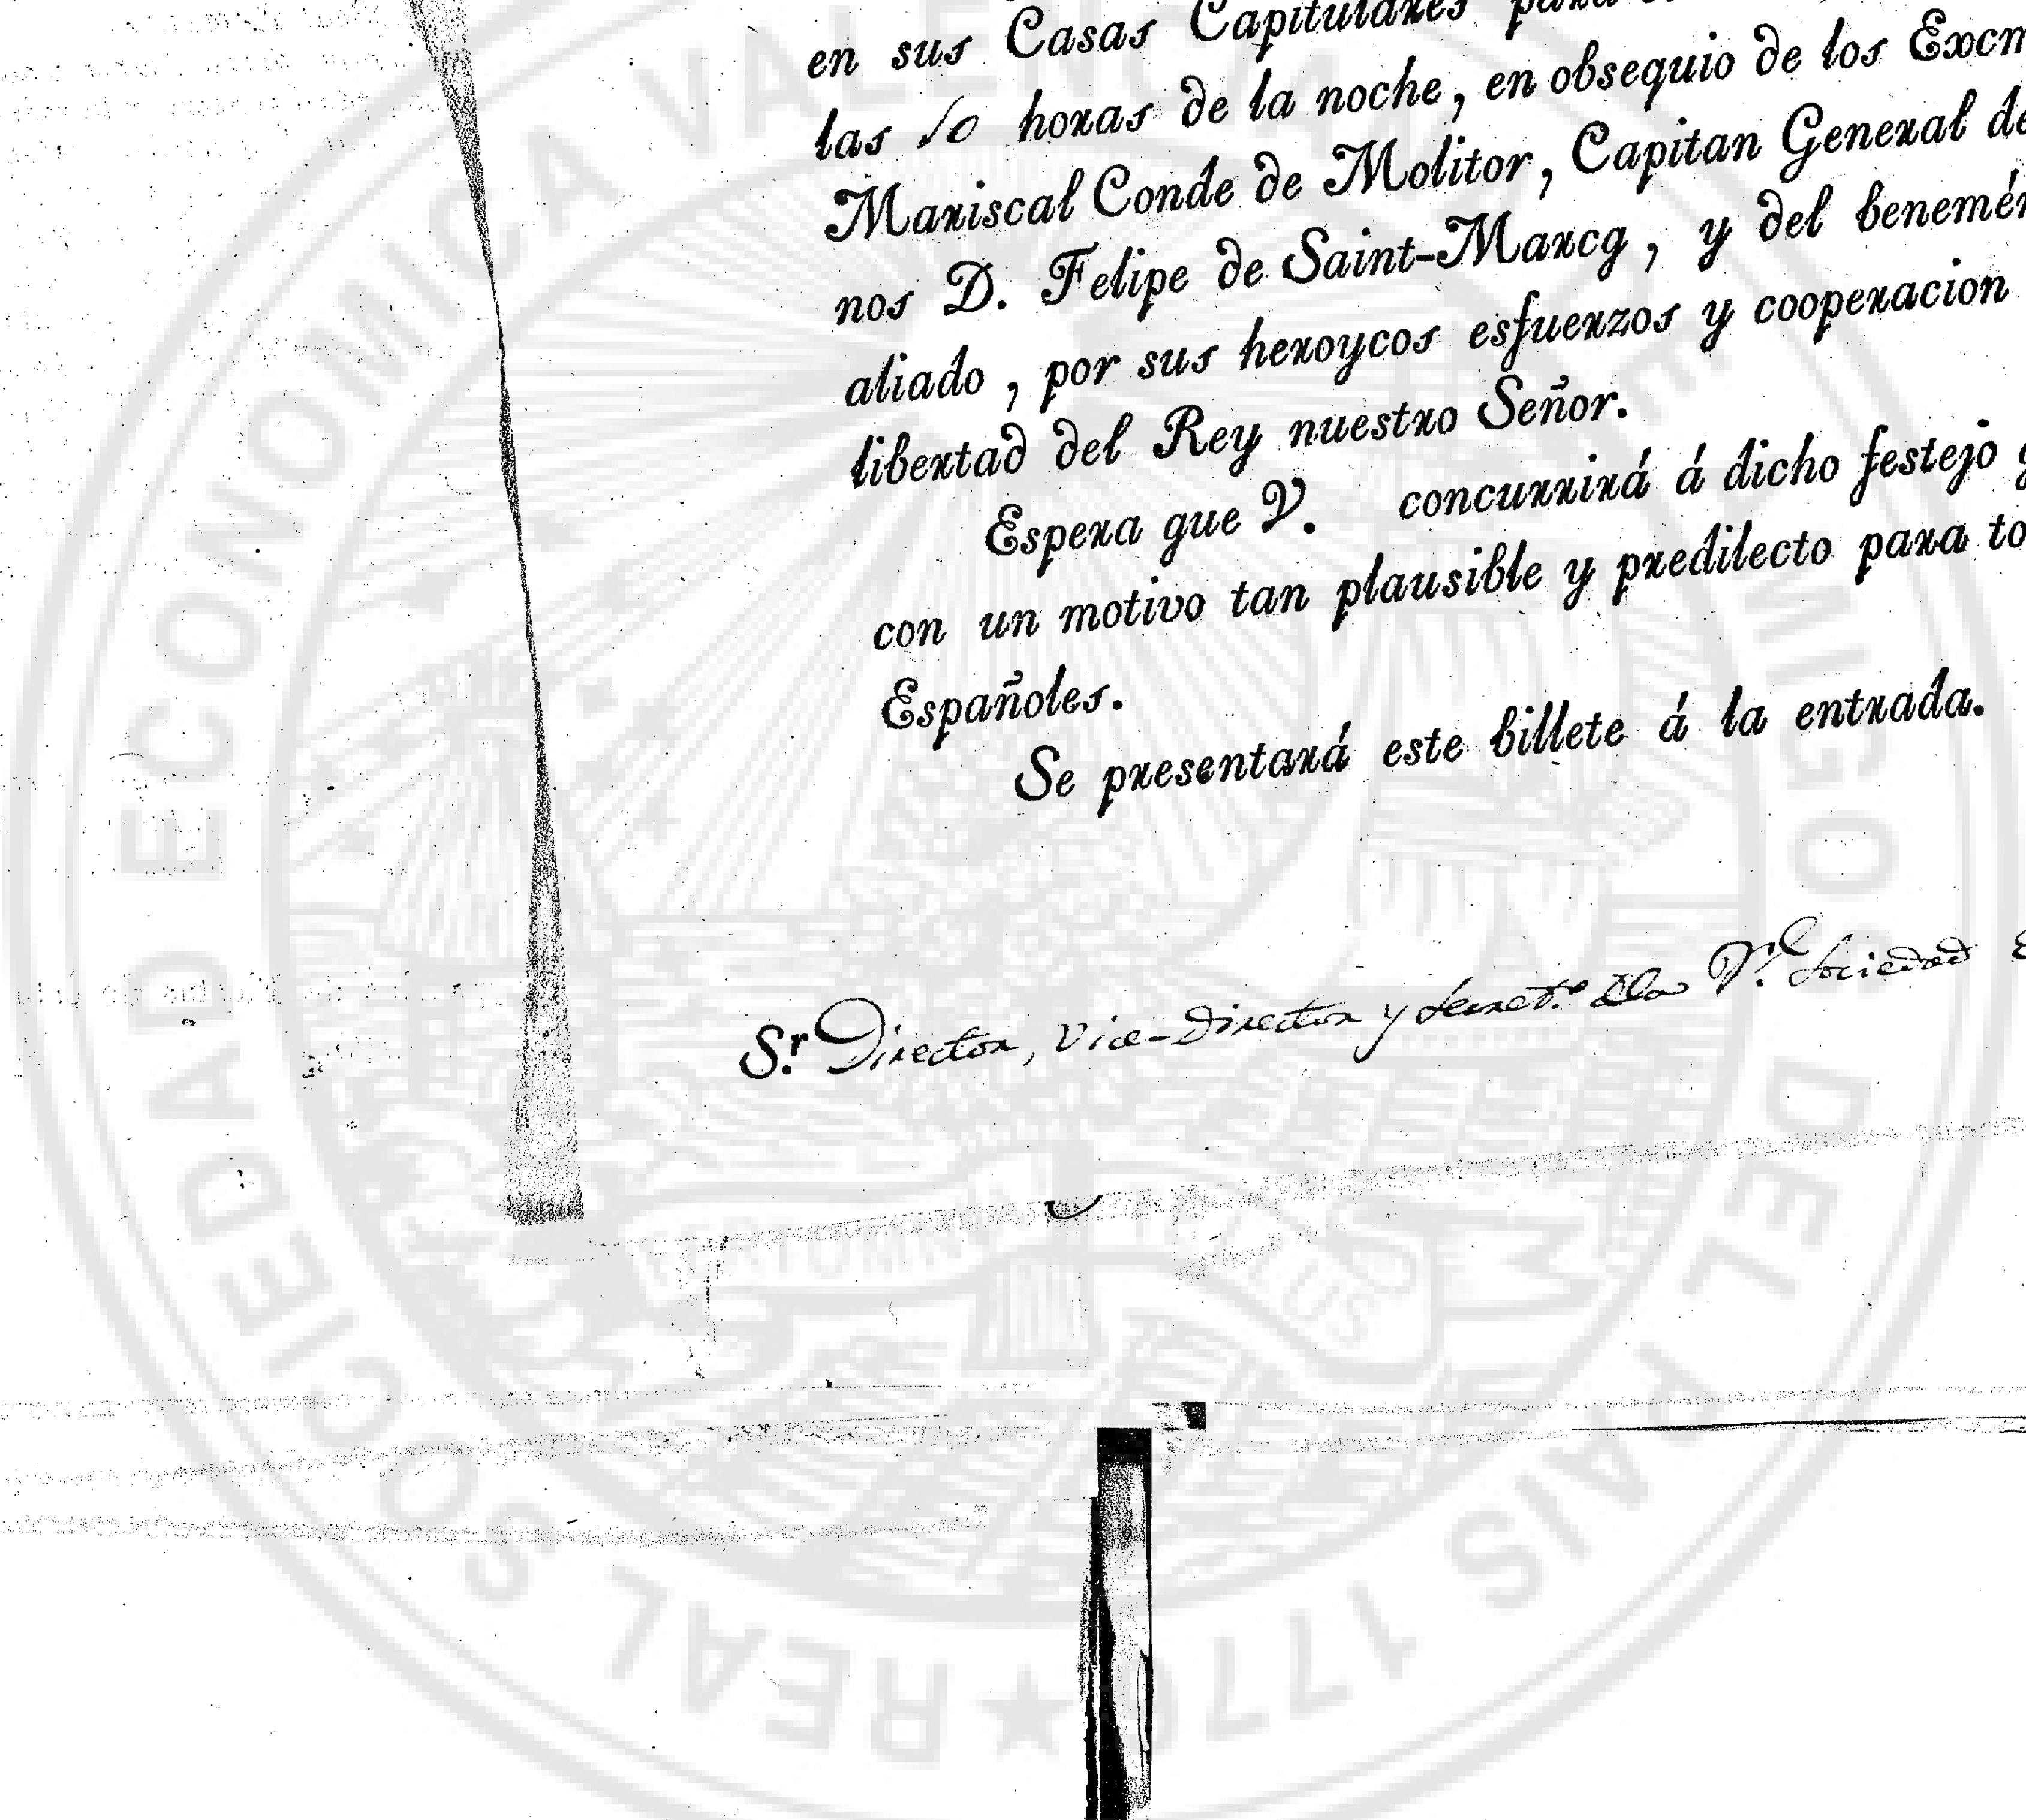 en sus Casas Capitulares para
las 10 horas de la noche, en obsequio de los Excm
Mariscal Conde de Molitor, Capitan General de
nos D. Felipe de Saint-Marcq, y del benemér
aliado, por sus heroycos esfuerzos y cooperacion
libertad del Rey nuestro Señor.
Espera que V. concurrirá á dicho festejo
con un motivo tan plausible y predilecto para to
Españoles.
Se presentará este billete á la entrada.
S.r Director, Vice-Director y Secret.o dela R.l Sociedad
REAL SOCIEDAD ECONOMICA VALEN
DEL PAIS 1776